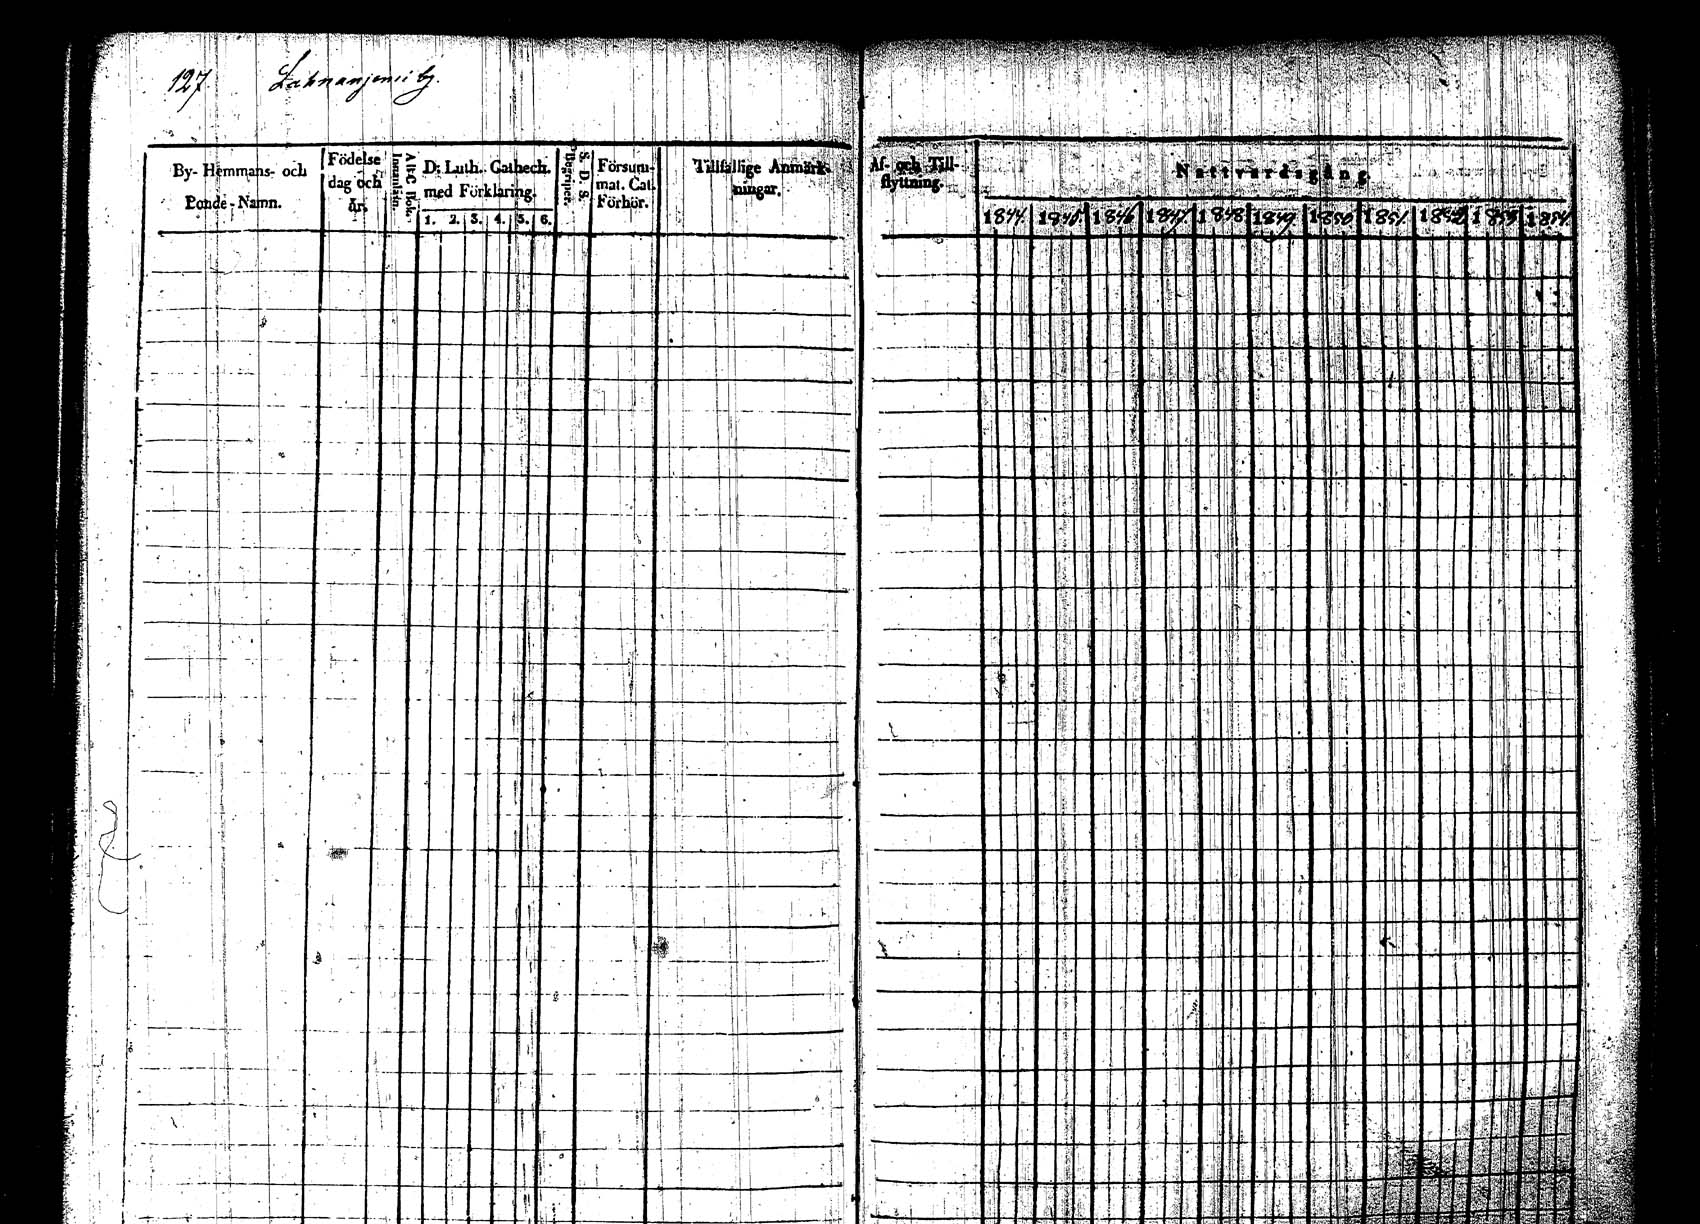 127. Lahnanjemi by.
By- Hemmans- och
Bonde-Namn.
Födelse
dag och
år.
ABC Bok.
Innanläsn.
D: Luth. Cathech.
med Förklaring.
1. 2. 3. 4. 5. 6.
S. D. S.
Begripet.
Försum-
mat. Cat.
Förhör.
Tillfällige Anmärk-
ningar.
Af- och Till-
flyttning.
Nattvardsgång.
1844 1845 1846 1847 1848 1849 1850 1851 1852 1853 1854